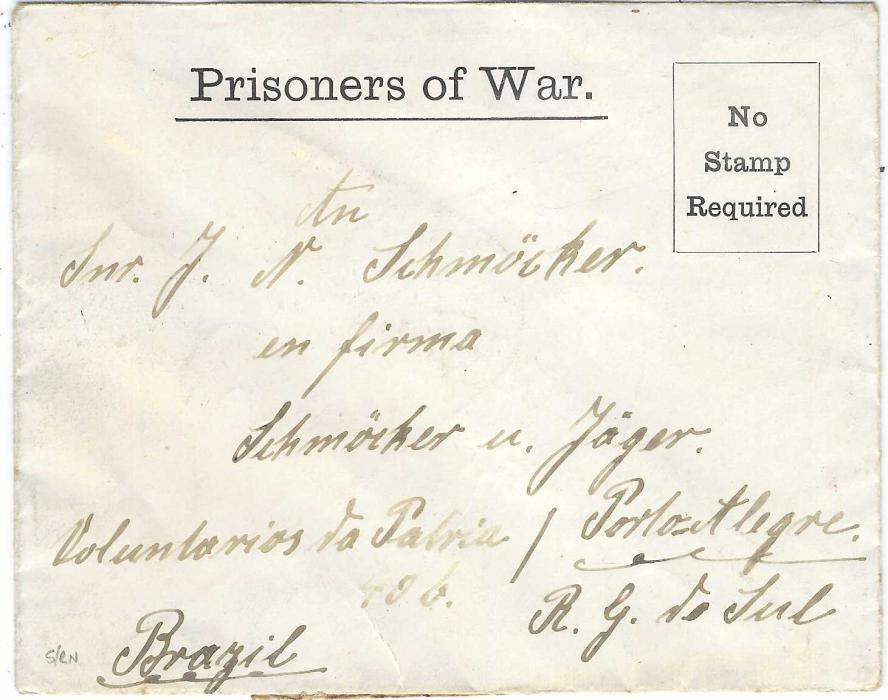 Prisoners of War.
No
Stamp
Required
An
Snr. J. N. Schmöcker.
en firma
Schmöcker u. Jäger.
Voluntarios da Patria / Porto=Alegre.
R. G. do Sul
Brazil